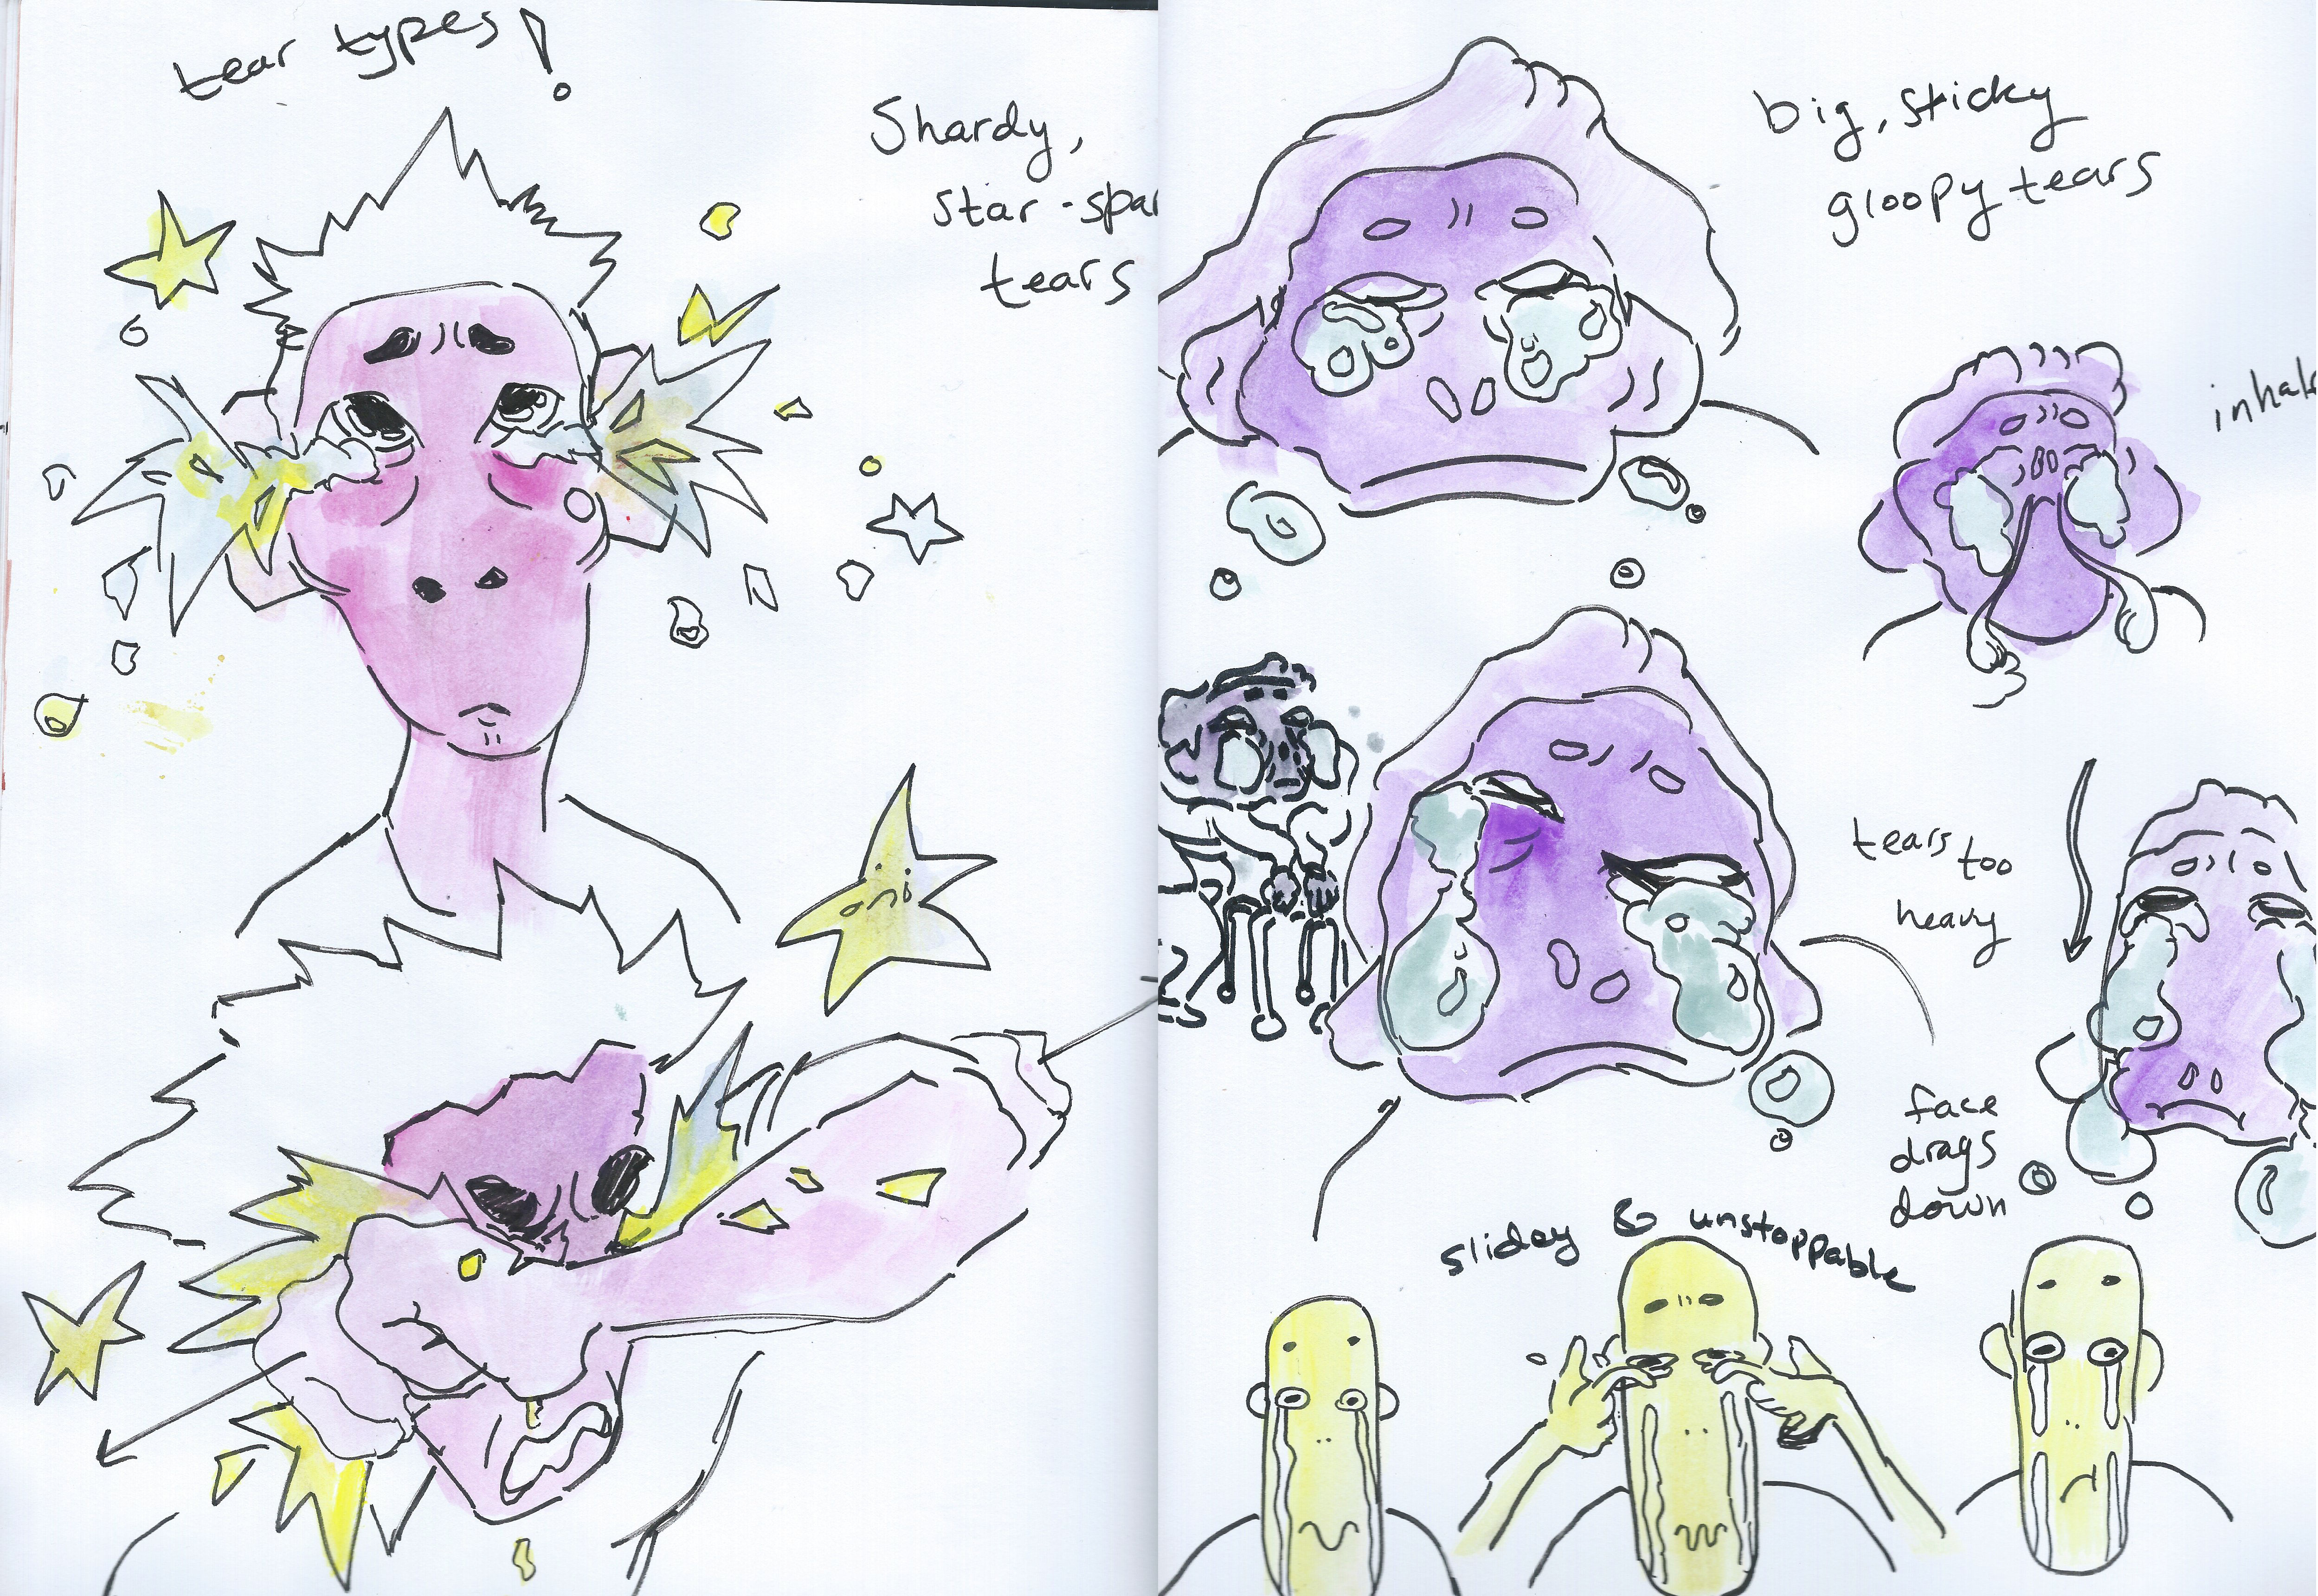 tear types!
Shardy,
star-spar
tears
big, sticky
gloopy tears
inhale
tears too
heavy
face
drags
down
slidey & unstoppable